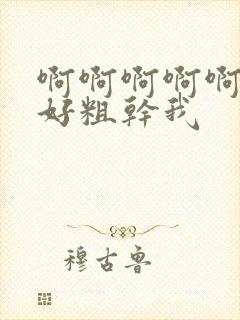 啊啊啊啊啊
好粗幹我
穆古鲁